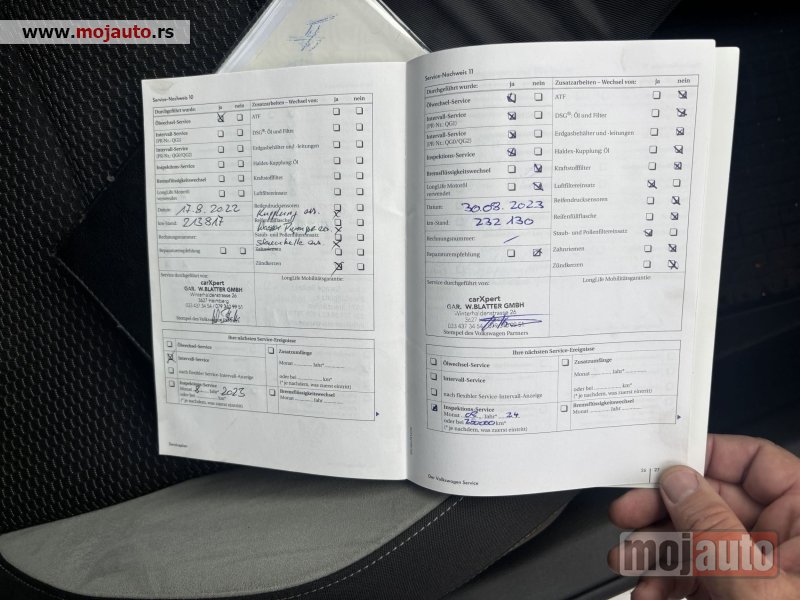 www.mojauto.rs
Service-Nachweis 10
Durchgeführt wurde: ja nein
Ölwechsel-Service
Intervall-Service
(PR-Nr.: QG1)
Intervall-Service
(PR-Nr.: QG0/QG2)
Inspektions-Service
Bremsflüssigkeitswechsel
LongLife Motoröl
verwendet
Datum: 17.8.2022
km-Stand: 213817
Rechnungsnummer:
Reparaturempfehlung
Zusatzarbeiten – Wechsel von: ja nein
ATF
DSG®: Öl und Filter
Erdgasbehälter und -leitungen
Haldex-Kupplung: Öl
Kraftstofffilter
Luftfiltereinsatz
Reifendrucksensoren
Kupplung ers.
Reifenfüllflasche
Wasserpumpe ers.
Staub- und Pollenfiltereinsatz
Zahnriemen
Zündkerzen
Service durchgeführt von:
LongLife Mobilitätsgarantie:
carXpert
GAR. W.BLATTER GMBH
Winterhaldenstrasse 26
3627 Heimberg
Stempel des Volkswagen
Ihre nächsten Service-Ereignisse
Ölwechsel-Service
Intervall-Service
nach flexibler Service-Intervall-Anzeige
Inspektions-Service
Monat 8 Jahr* 2023
oder bei km*
(* je nachdem, was zuerst eintritt)
Zusatzumfänge
Monat Jahr*
oder bei km*
(* je nachdem, was zuerst eintritt)
Bremsflüssigkeitswechsel
Monat Jahr
Service-Nachweis 11
Durchgeführt wurde: ja nein
Ölwechsel-Service
Intervall-Service
(PR-Nr.: QG1)
Intervall-Service
(PR-Nr.: QG0/QG2)
Inspektions-Service
Bremsflüssigkeitswechsel
LongLife Motoröl
verwendet
Datum: 30.08.2023
km-Stand: 232 130
Rechnungsnummer: /
Reparaturempfehlung
Zusatzarbeiten – Wechsel von: ja nein
ATF
DSG®: Öl und Filter
Erdgasbehälter und -leitungen
Haldex-Kupplung: Öl
Kraftstofffilter
Luftfiltereinsatz
Reifendrucksensoren
Reifenfüllflasche
Staub- und Pollenfiltereinsatz
Zahnriemen
Zündkerzen
Service durchgeführt von:
LongLife Mobilitätsgarantie:
carXpert
GAR. W.BLATTER GMBH
Winterhaldenstrasse 26
3627
033 437 34 54
Stempel des Volkswagen Partners
Ihre nächsten Service-Ereignisse
Ölwechsel-Service
Intervall-Service
nach flexibler Service-Intervall-Anzeige
Inspektions-Service
Monat 09 Jahr* 24
oder bei km*
(* je nachdem, was zuerst eintritt)
Zusatzumfänge
Monat Jahr*
oder bei km*
(* je nachdem, was zuerst eintritt)
Bremsflüssigkeitswechsel
Monat Jahr
Der Volkswagen Service
26 27
mojauto